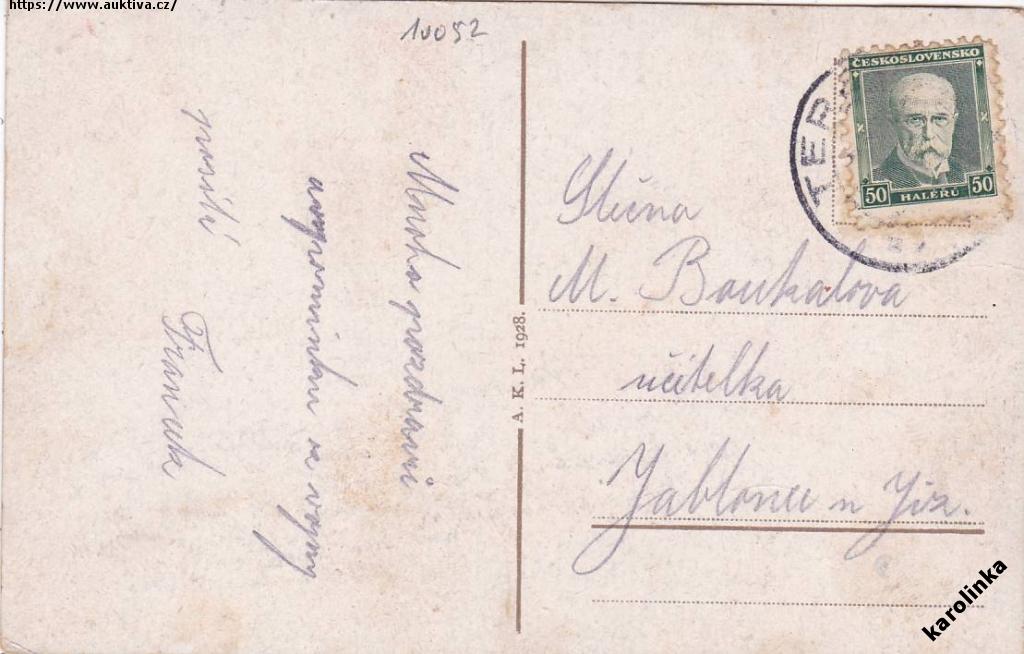 https://www.auktiva.cz/
10052
Mnoho pozdravů
vzpomínku ze vojny
posílá
Franěk
A. K. L. 1928.
ČESKOSLOVENSKO
50 50
HALÉŘŮ
TER
Slečna
M. Boukalova
učitelka
Jablonec n Jiz.
karolinka